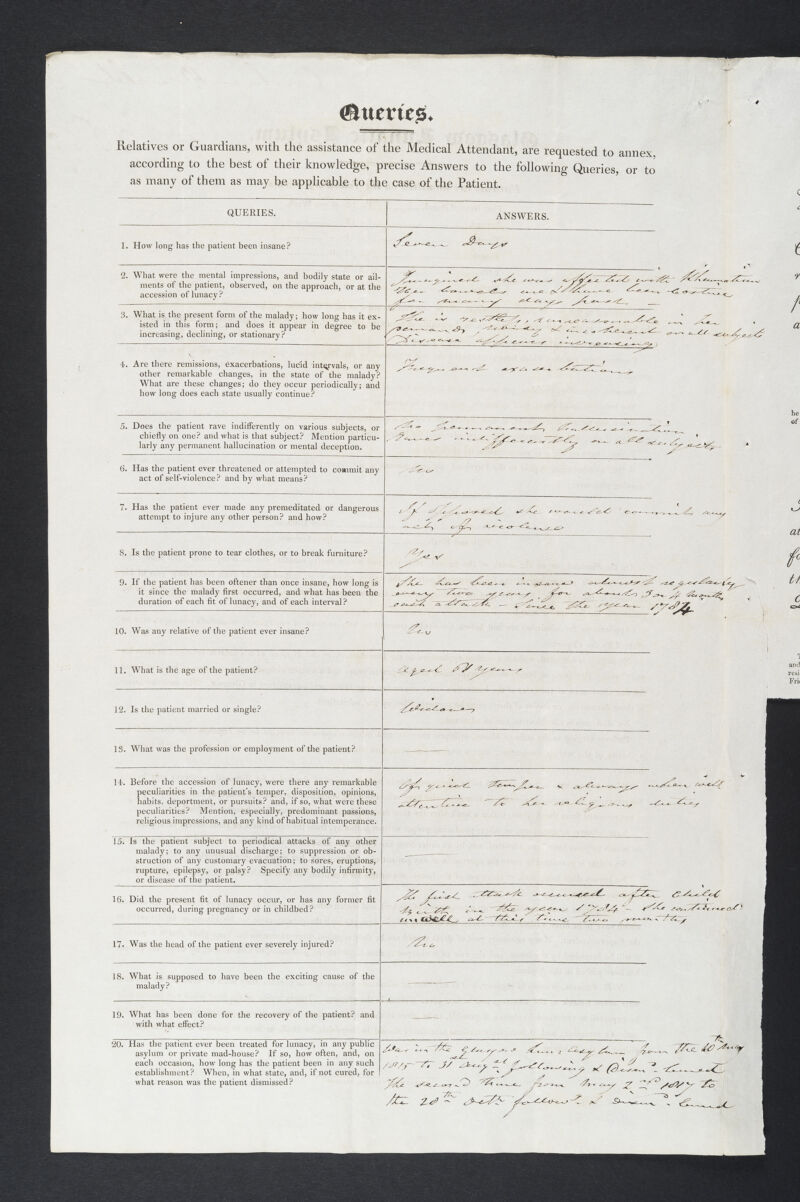 Queries.
Relatives or Guardians, with the assistance of the Medical Attendant, are requested to annex,
according to the best of their knowledge, precise Answers to the following Queries, or to
as many of them as may be applicable to the case of the Patient.
QUERIES.
ANSWERS.
1. How long has the patient been insane?
Seven Days
2. What were the mental impressions, and bodily state or ail-
ments of the patient, observed, on the approach, or at the
accession of lunacy?
Imagined she was affected with Rheumatism
Her bowels are & have been Costive
for many days past —
3. What is the present form of the malady; how long has it ex-
isted in this form; and does it appear in degree to be
increasing, declining, or stationary?
She is restless, unreasonable in her
demands, noisy & incoherent on all subjects
Disease appears increasing
4. Are there remissions, exacerbations, lucid intervals, or any
other remarkable changes, in the state of the malady?
What are these changes; do they occur periodically; and
how long does each state usually continue?
Frequent exacerbations
5. Does the patient rave indifferently on various subjects, or
chiefly on one? and what is that subject? Mention particu-
larly any permanent hallucination or mental deception.
No permanent hallucination
raves indifferently on all subjects
6. Has the patient ever threatened or attempted to commit any
act of self-violence? and by what means?
No
7. Has the patient ever made any premeditated or dangerous
attempt to injure any other person? and how?
If opposed she would commit any
act of violence
8. Is the patient prone to tear clothes, or to break furniture?
Yes
9. If the patient has been oftener than once insane, how long is
it since the malady first occurred, and what has been the
duration of each fit of lunacy, and of each interval?
She has been insane almost regularly
every two years for about 3 or 4 months
each attack – Since the year 1784
10. Was any relative of the patient ever insane?
No
11. What is the age of the patient?
Aged years
12. Is the patient married or single?
Widow
13. What was the profession or employment of the patient?
14. Before the accession of lunacy, were there any remarkable
peculiarities in the patient's temper, disposition, opinions,
habits, deportment, or pursuits? and, if so, what were these
peculiarities? Mention, especially, predominant passions,
religious impressions, and any kind of habitual intemperance.
Of quick temper & always when well
attentive to her religious duties
15. Is the patient subject to periodical attacks of any other
malady; to any unusual discharge; to suppression or ob-
struction of any customary evacuation; to sores, eruptions,
rupture, epilepsy, or palsy? Specify any bodily infirmity,
or disease of the patient.
16. Did the present fit of lunacy occur, or has any former fit
occurred, during pregnancy or in childbed?
The first attack occurred after Child
Birth in the year 1784 – She continued
unwell at this time two months
17. Was the head of the patient ever severely injured?
No
18. What is supposed to have been the exciting cause of the
malady?
19. What has been done for the recovery of the patient? and
with what effect?
20. Has the patient ever been treated for lunacy, in any public
asylum or private mad-house? If so, how often, and, on
each occasion, how long has the patient been in any such
establishment? When, in what state, and, if not cured, for
what reason was the patient dismissed?
Was in the Glasgow Lun: Asylum from the May
1815 to 31st Augst following & Dism.d Cured
The second time from May 2nd 1817 to
the 28th Octr followg. & Dism.d Cured